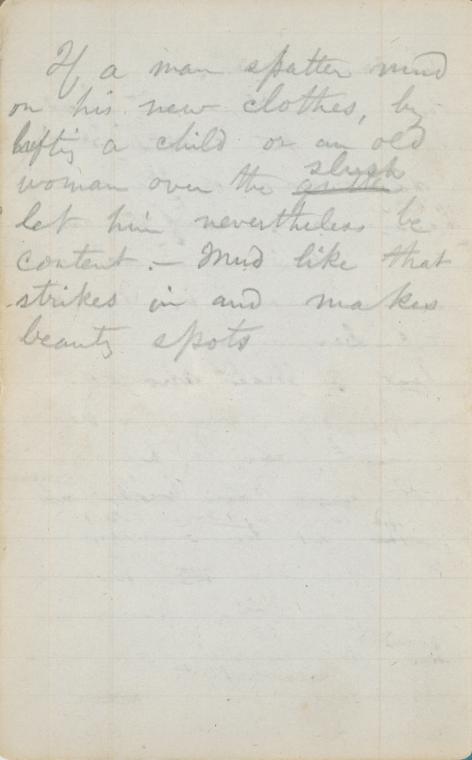 If a man spatter mud
on his new clothes, by
hefting a child or an old
woman over the gutter slush
let him nevertheless be
content. — Mud like that
strikes in and makes
beauty spots